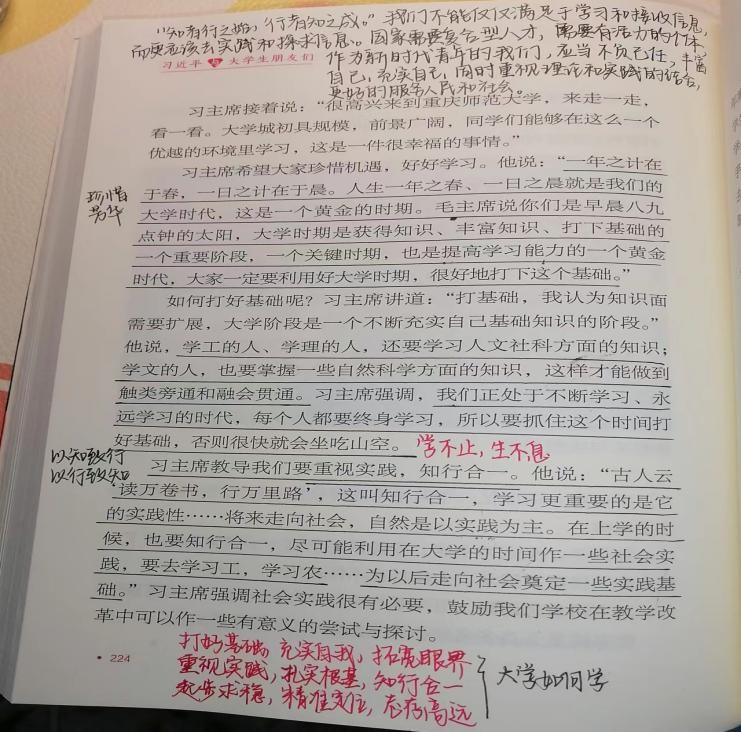 “知者行之始，行者知之成。”我们不能仅仅满足于学习和接收信息，
而更应该去实践和探求信息。国家需要复合型人才，需要有活力的个体，
习近平与大学生朋友们
作为新时代青年的我们，应当不负己任，丰富
自己，充实自己，同时重视理论和实践的结合，
更好的服务人民和社会。
习主席接着说：“很高兴来到重庆师范大学，来走一走，
看一看。大学城初具规模，前景广阔，同学们能够在这么一个
优越的环境里学习，这是一件很幸福的事情。”
习主席希望大家珍惜机遇，好好学习。他说：“一年之计在
于春，一日之计在于晨。人生一年之春、一日之晨就是我们的
大学时代，这是一个黄金的时期。毛主席说你们是早晨八九
点钟的太阳，大学时期是获得知识、丰富知识、打下基础的
一个重要阶段，一个关键时期，也是提高学习能力的一个黄金
时代，大家一定要利用好大学时期，很好地打下这个基础。”
珍惜
芳华
如何打好基础呢？习主席讲道：“打基础，我认为知识面
需要扩展，大学阶段是一个不断充实自己基础知识的阶段。”
他说，学工的人、学理的人，还要学习人文社科方面的知识；
学文的人，也要掌握一些自然科学方面的知识，这样才能做到
触类旁通和融会贯通。习主席强调，我们正处于不断学习、永
远学习的时代，每个人都要终身学习，所以要抓住这个时间打
好基础，否则很快就会坐吃山空。 学不止，生不息
以知致行
以行致知
习主席教导我们要重视实践，知行合一。他说：“古人云
‘读万卷书，行万里路’，这叫知行合一，学习更重要的是它
的实践性……将来走向社会，自然是以实践为主。在上学的时
候，也要知行合一，尽可能利用在大学的时间作一些社会实
践，要去学习工，学习农……为以后走向社会奠定一些实践基
础。”习主席强调社会实践很有必要，鼓励我们学校在教学改
革中可以作一些有意义的尝试与探讨。
• 224
打好基础，充实自我，拓宽眼界
重视实践，扎实根基，知行合一
起步求稳，精准定位，志存高远
大学如何学